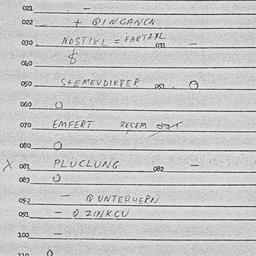 021 -
022 + QINGANCN
030 NOSTIXL = FARTAXL 031 -
040 $
050 STEMEVDIKPER 051 . O
060 O
070 EMFERT RECEM
080 O
081 X PLUCLUNG 082 -
083 O
092 - QUNTERHERN
091 - QZINKCU
100 -
110 O